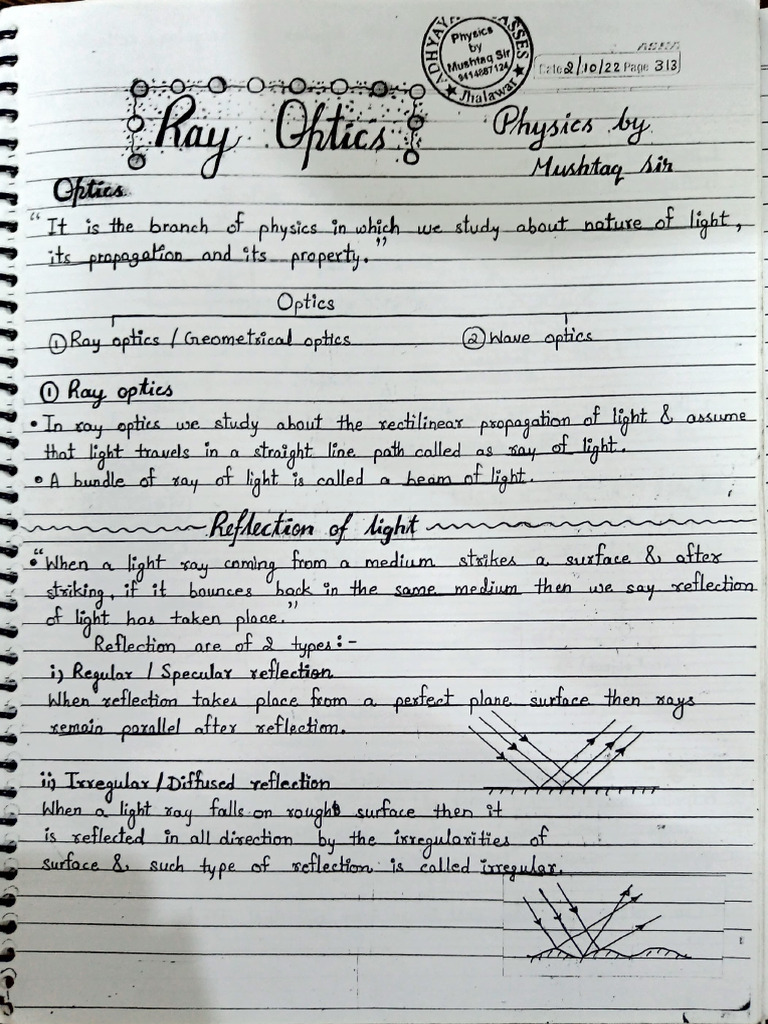 ADHYAYAN CLASSES
Physics
by
Mushtaq Sir
9414887124
Jhalawar
Date 2/10/22 Page 313
Ray Optics
Physics by
Mushtaq Sir
Optics
"It is the branch of physics in which we study about nature of light,
its propagation and its property."
Optics
① Ray optics / Geometrical optics
② Wave optics
① Ray optics
• In ray optics we study about the rectilinear propagation of light & assume
that light travels in a straight line path called as ray of light.
• A bundle of ray of light is called a beam of light.
Reflection of light
• "When a light ray coming from a medium strikes a surface & after
striking, if it bounces back in the same medium then we say reflection
of light has taken place."
Reflection are of 2 types:-
i) Regular / Specular reflection
When reflection takes place from a perfect plane surface then rays
remain parallel after reflection.
ii) Irregular / Diffused reflection
When a light ray falls on rough surface then it
is reflected in all direction by the irregularities of
surface & such type of reflection is called irregular.